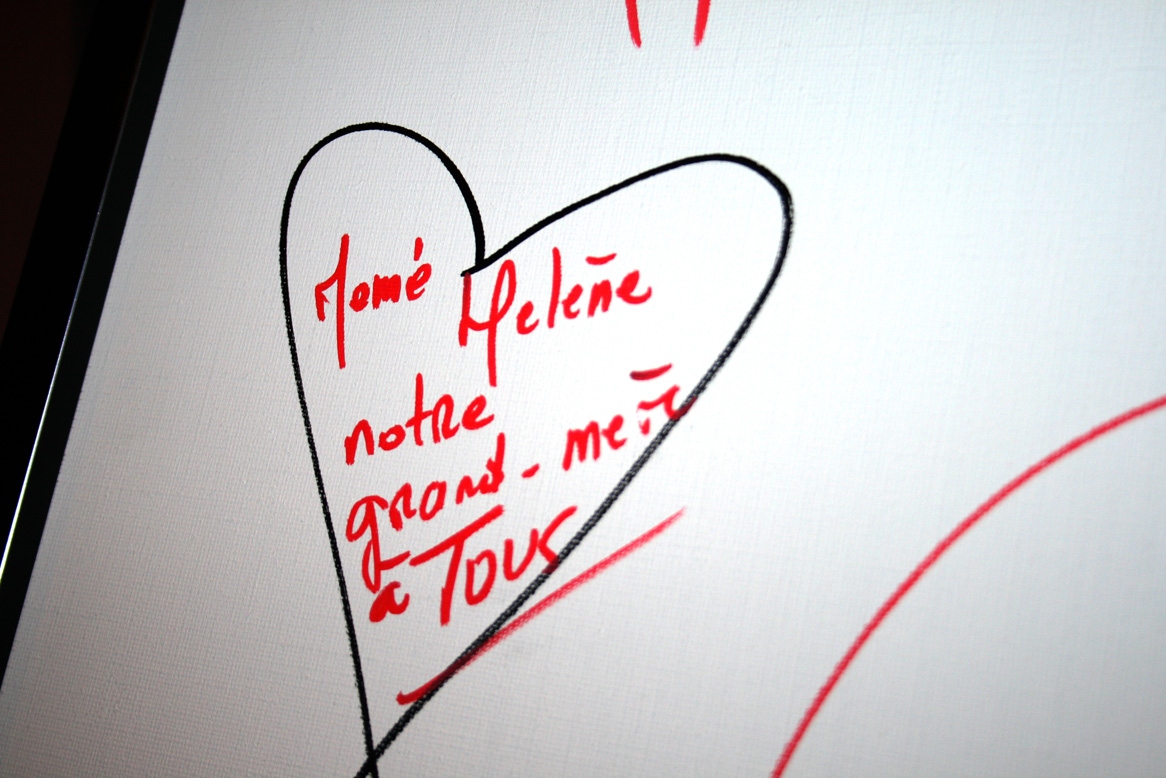 Mamé Helène
notre
grand-mère
a Tous